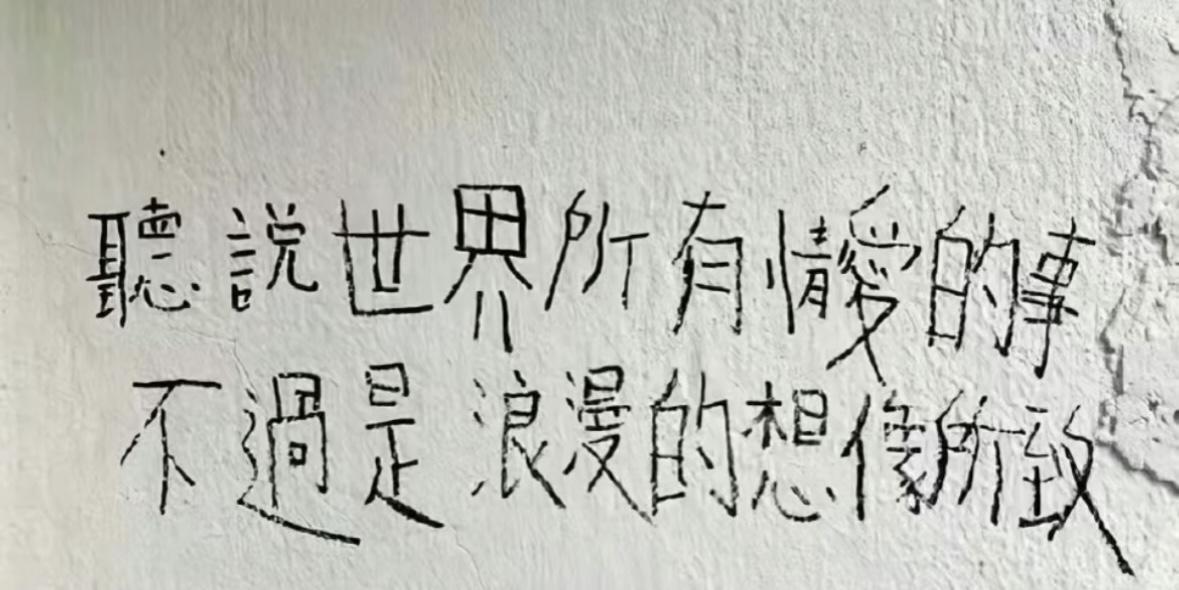 聽說世界所有情愛的事
不過是浪漫的想像所致